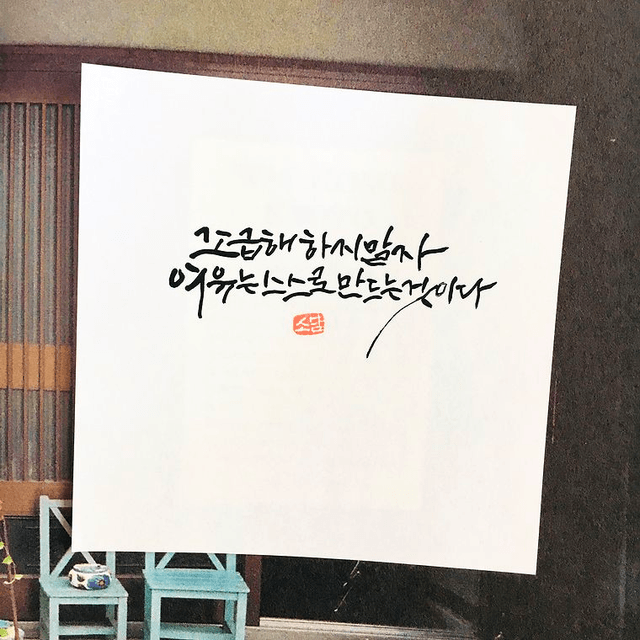 조급해 하지말자
여유는 스스로 만드는 것이다
소담